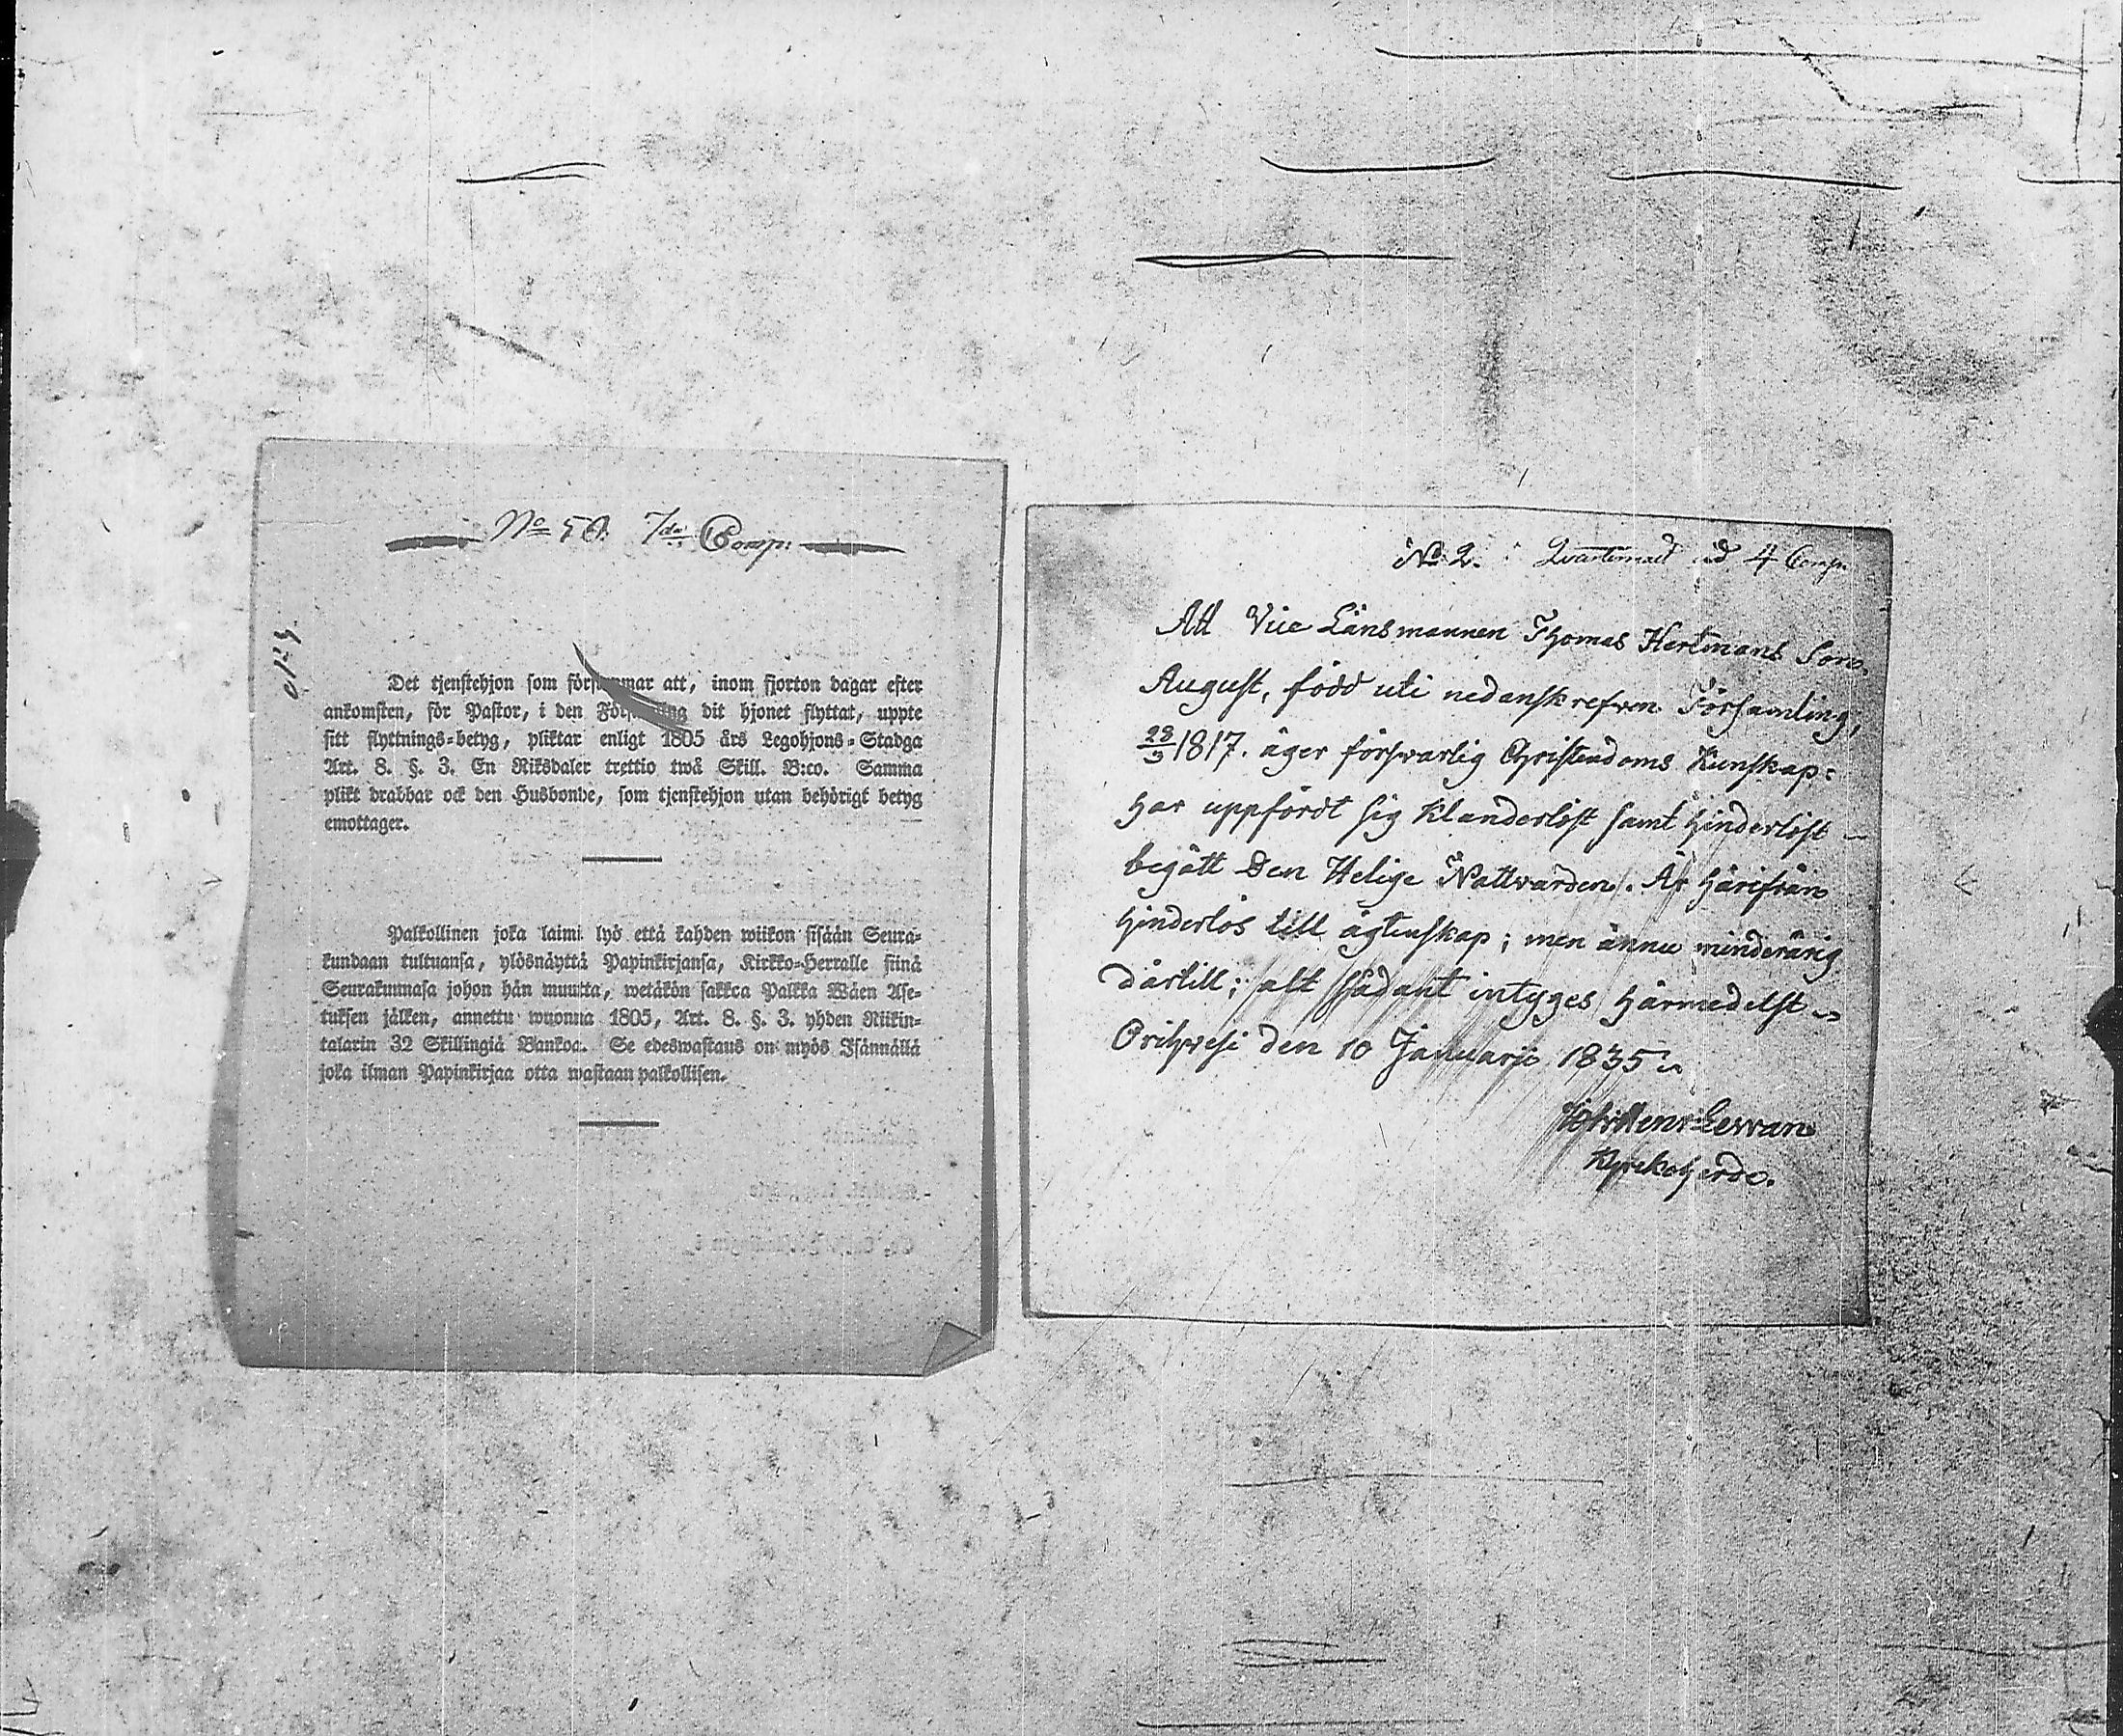 No 50. 7de Comp:
Det tjenstehjon som försummar att, inom fjorton dagar efter
ankomsten, för Pastor, i den Församling dit hjonet flyttat, uppte
sitt flyttnings-betyg, pliktar enligt 1805 års Legohjons-Stadga
Art. 8. §. 3. En Riksdaler trettio twå Skill. B:co. Samma
plikt drabbar ock den Husbonde, som tjenstehjon utan behörigt betyg
emottager.
Palkollinen joka laimi lyö että kahden wiikon sisään Seura-
kundaan tultuansa, ylösnäyttä Papinkirjansa, Kirkko-Herralle siinä
Seurakunnasa johon hän muutta, wetäkön sakkoa Palkka Wäen Ase-
tuksen jälken, annettu wuonna 1805, Art. 8. §. 3. yhden Riikin-
talarin 32 Skillingiä Bankoa. Se edeswastaus on myös Isännällä
joka ilman Papinkirjaa otta wastaan palkollisen.
No 2. 4 Comp.
Att Vice Länsmannen Thomas Hertmans Son,
August, född uti nedanskrefven Församling,
23/3 1817. äger försvarlig Christendoms Kunskap:
har uppfördt sig Klanderlöst samt hinderlöst
begått Den Helige Nattvarden. Är härifrån
hinderlös till ägtenskap; men ännu minderårig
därtill; alt sådant intyges härmedelst
Orihvesi den 10 Januarii 1835
Henr Levvan
Kyrkoherde.